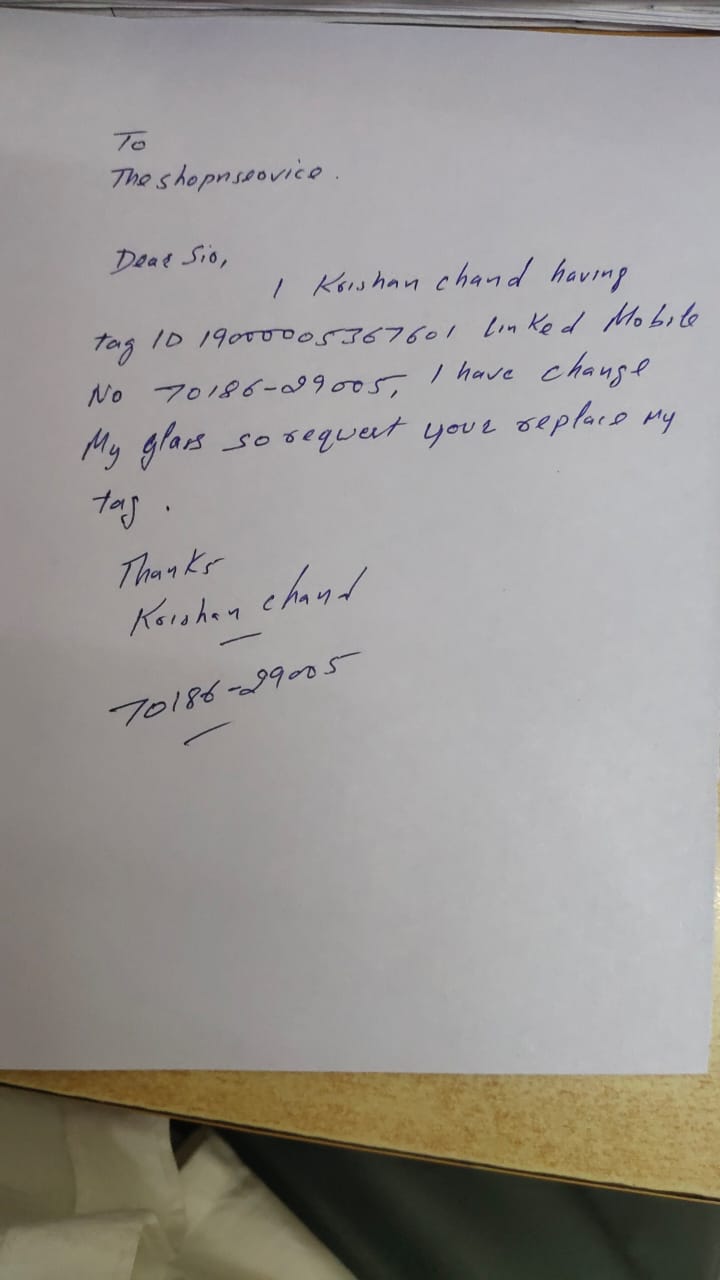 To
Theshopnservice.
Dear Sir,
I Krishan chand having
tag ID 19000005367601 linked Mobile
No 70186-29005, I have change
My glass so request your replace My
tag.
Thanks
Krishan chand
70186-29005